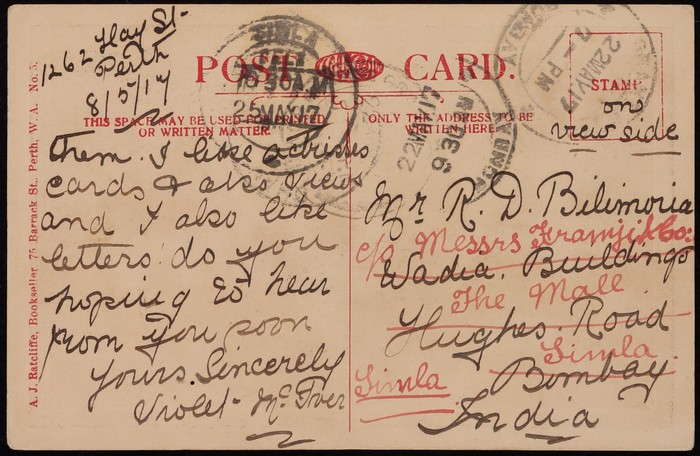 1262 Hay St
Perth
8/5/17
POST CARD.
THIS SPACE MAY BE USED FOR PRINTED
OR WRITTEN MATTER.
ONLY THE ADDRESS TO BE
WRITTEN HERE.
STAMP
on
view side
SIMLA
25 MAY 17
22 MAY 17
9 30
22 MAY 17
PM
them. I like actresses
cards & also views
and I also like
letters do you
hoping to hear
from you soon
Yours Sincerely
Violet McIver
Mr R. D. Bilimoria
c/o Messrs Framji & Co:
Wadia Buildings
The Mall
Hughes Road
Simla.
Simla
Bombay
India
A. J. Ratcliffe, Bookseller, 75 Barrack St., Perth, W. A. No. 5.